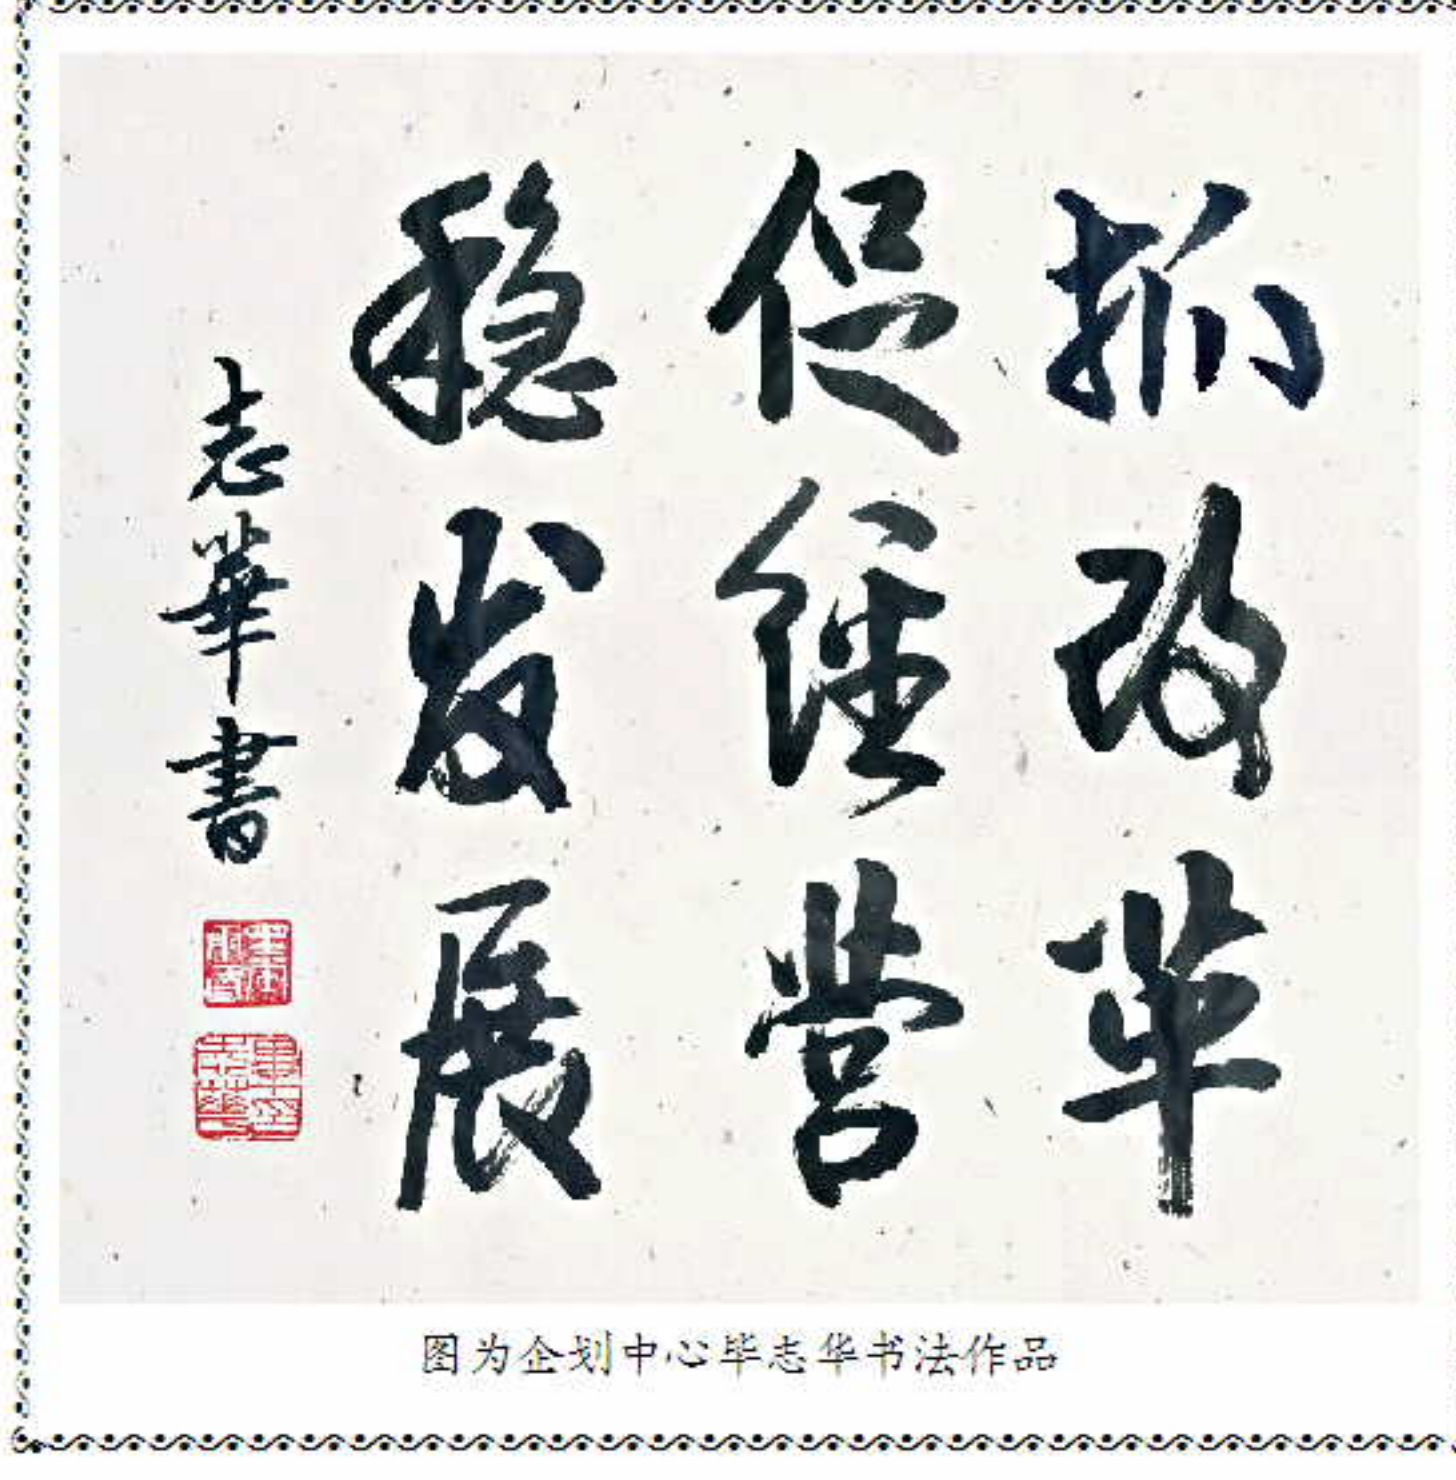 抓改革
促经营
稳发展
志華書
图为企划中心毕志华书法作品